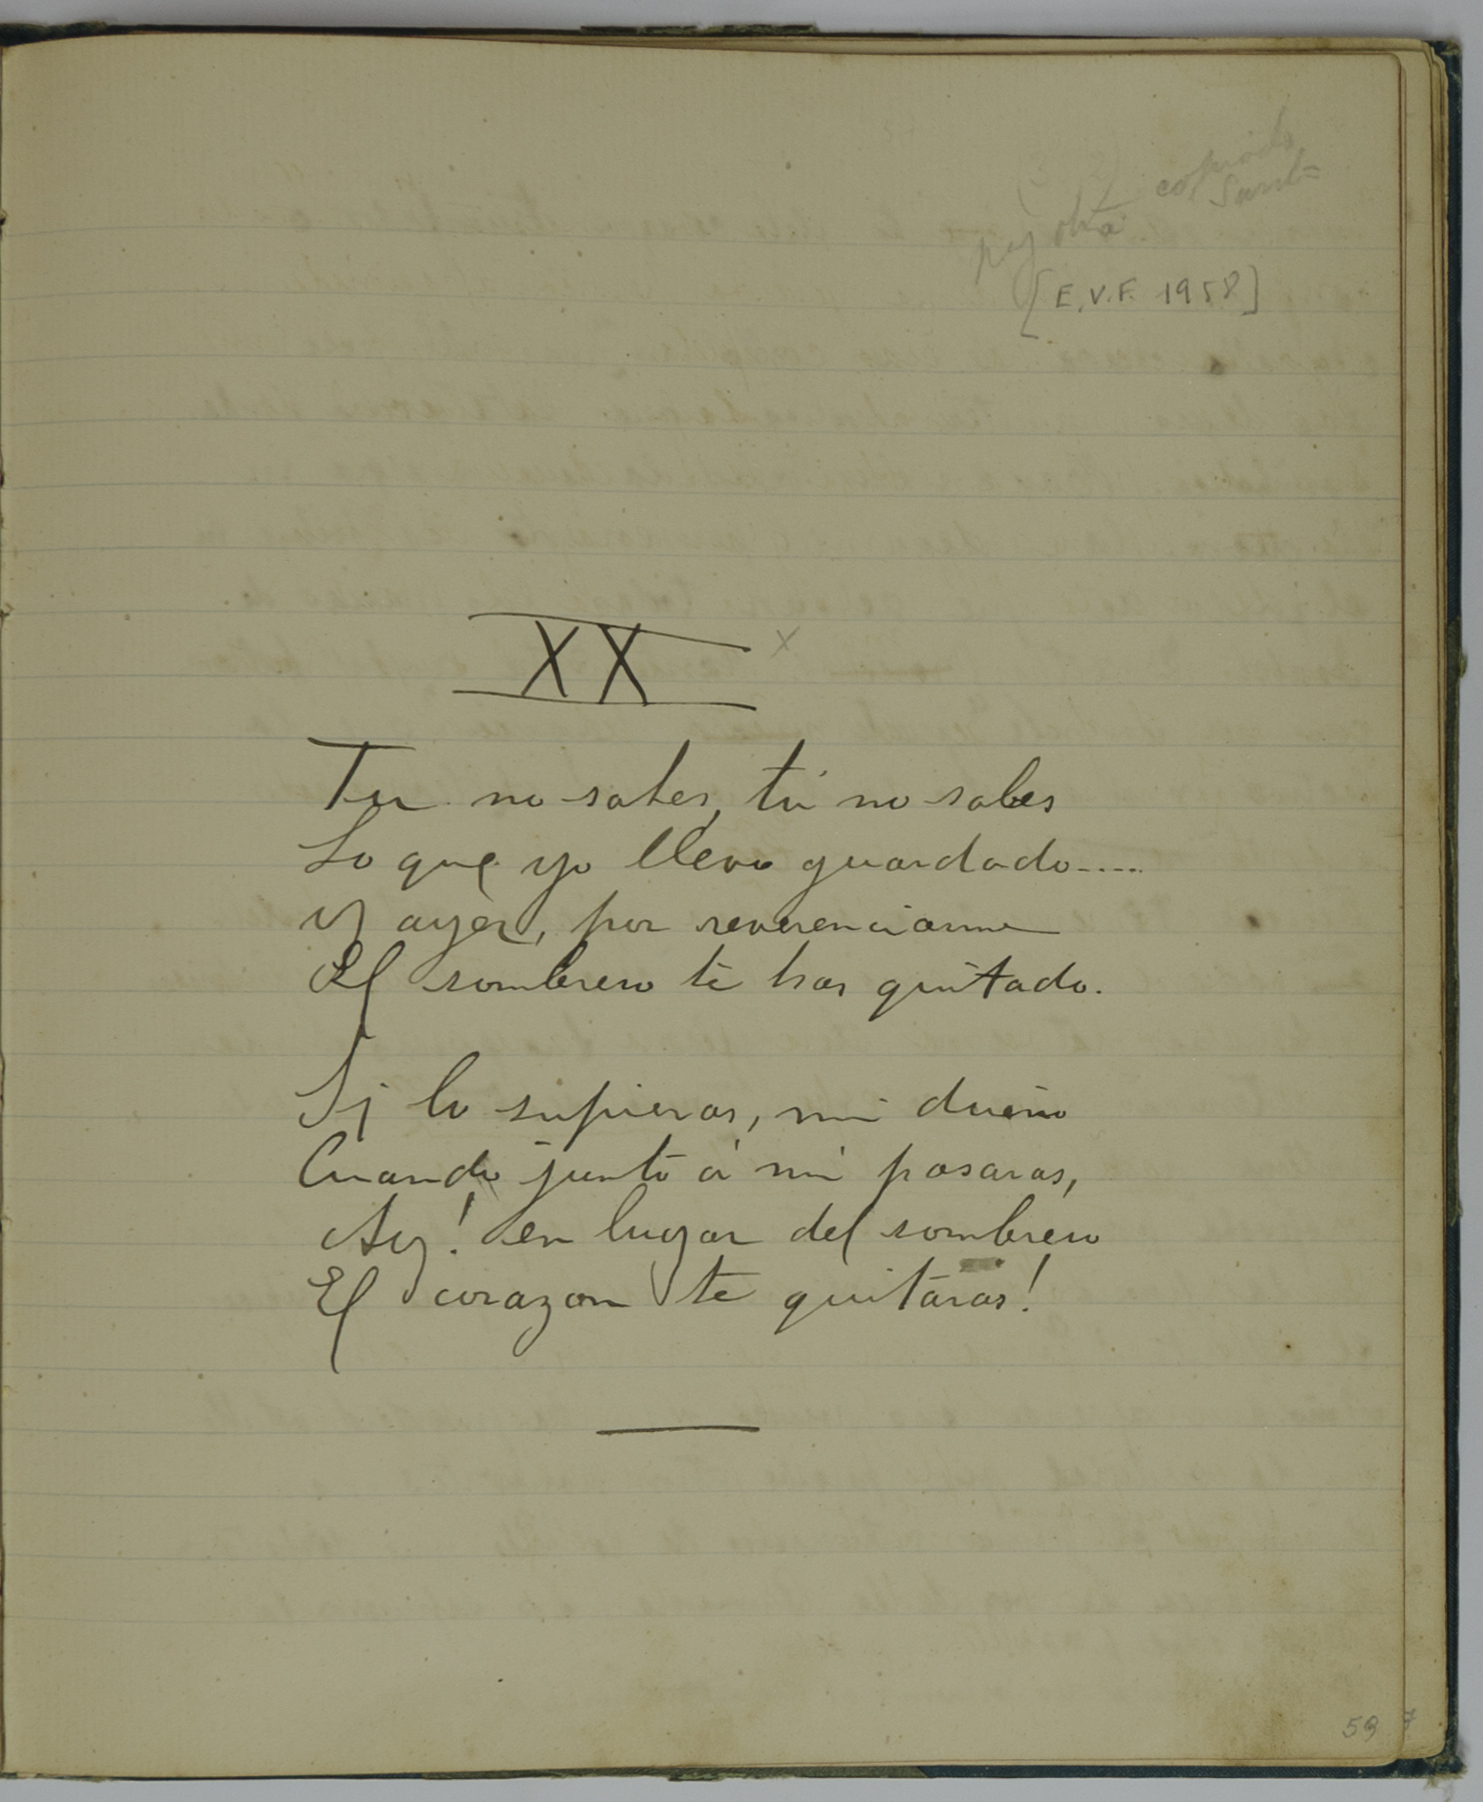 hay otra copiada
[E.V.F. 1958]
XX x
Tu no sabes, tú no sabes
Lo que yo llevo guardado....
Y ayer, por reverenciarme
El sombrero te has quitado.
Si lo supieras, mi dueño
Cuando junto á mi pasaras,
Ay! en lugar del sombrero
El corazon te quitáras!
59